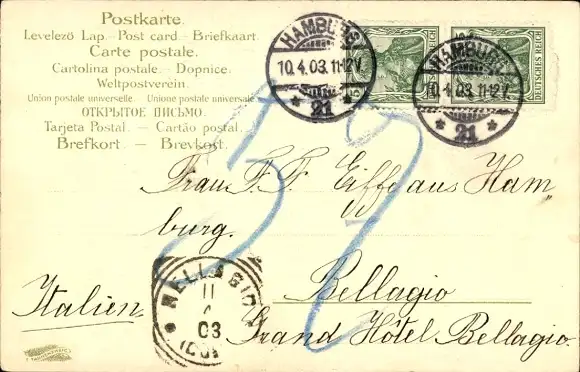 Postkarte.
Levelező Lap. - Post card - Briefkaart.
Carte postale.
Cartolina postale. - Dopnice.
Weltpostverein.
Union postale universelle. Unione postale universale.
ОТКРЫТОЕ ПИСЬМО.
Tarjeta Postal. - Cartão postal.
Brefkort. - Brevkort.
HAMBURG
10.4.03.11-12V.
* 21 *
HAMBURG
10.4.03.11-12V.
* 21 *
DEUTSCHES REICH
37
Frau F. F. Eiffe aus Ham
burg.
Bellagio
Italien.
Grand Hôtel Bellagio.
BELLAGIO
11
03
(COMO)